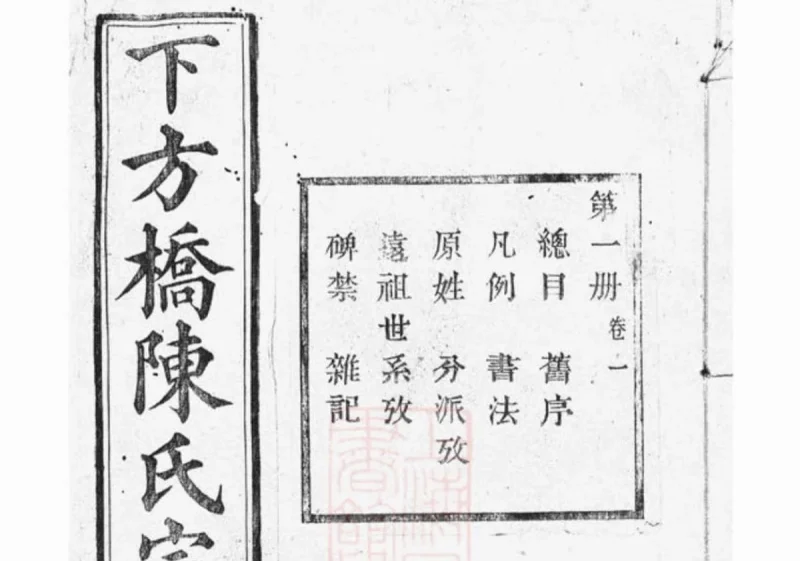 第一册 卷一
總目 舊序
凡例 書法
原姓 分派攷
遠祖世系攷
碑禁 雜記
下方橋陳氏